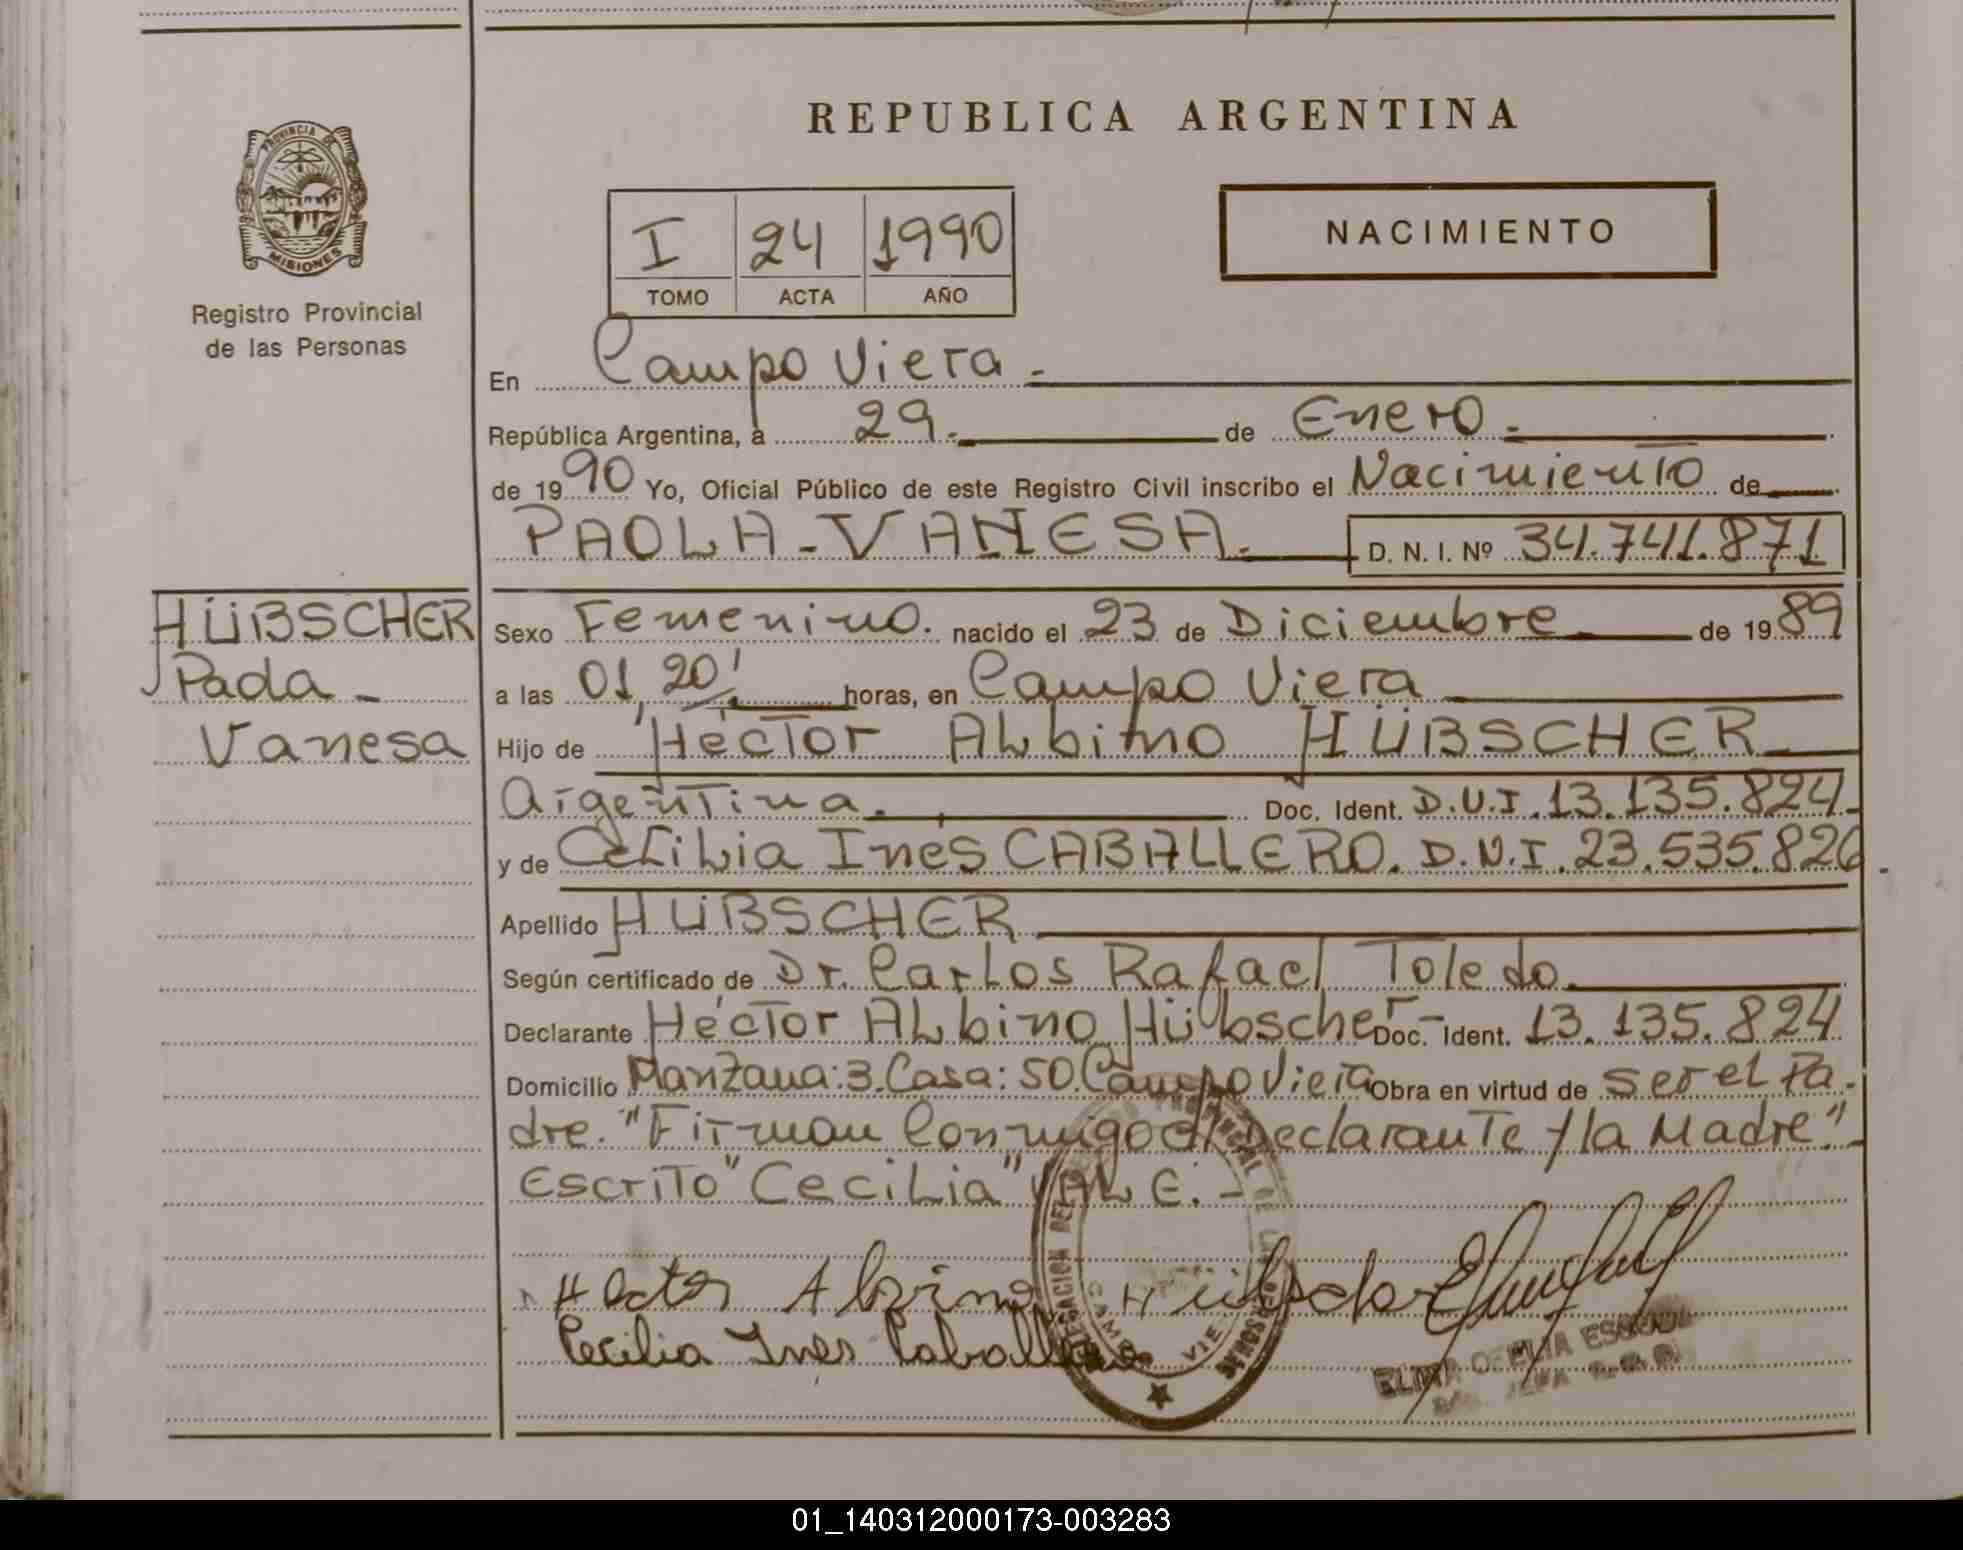 REPUBLICA ARGENTINA
PROVINCIA DE
MISIONES
Registro Provincial
de las Personas
I 24 1990
TOMO ACTA AÑO
NACIMIENTO
En Campo Viera.-
República Argentina, a 29.- de Enero.-
de 1990 Yo, Oficial Público de este Registro Civil inscribo el Nacimiento de
PAOLA-VANESA.- D. N. I. Nº 34.741.871
HÜBSCHER
Paola-
Vanesa
Sexo Femenino. nacido el 23 de Diciembre de 1989
a las 01,20' horas, en Campo Viera
Hijo de Héctor Albino HÜBSCHER-
Argentina. Doc. Ident. D.N.I. 13.135.824-
y de Inés CABALLERO. D.N.I. 23.535.826.
Apellido HÜBSCHER
Según certificado de Dr. Carlos Rafael Toledo.
Declarante Héctor Albino Hübscher- Doc. Ident. 13.135.824
Domicilio Manzana:3.Casa:50.Campo Viera Obra en virtud de ser el Pa-
dre."Firman Conmigo el Declarante y la Madre".-
Escrito "Cecilia" VALE.-
Hector Albino Hübscher
Cecilia Ines Caballero
DELEGACION DEL REGISTRO PROVINCIAL DE LAS PERSONAS
CAMPO VIERA
ELIDA OFELIA
JEFA
01_140312000173-003283